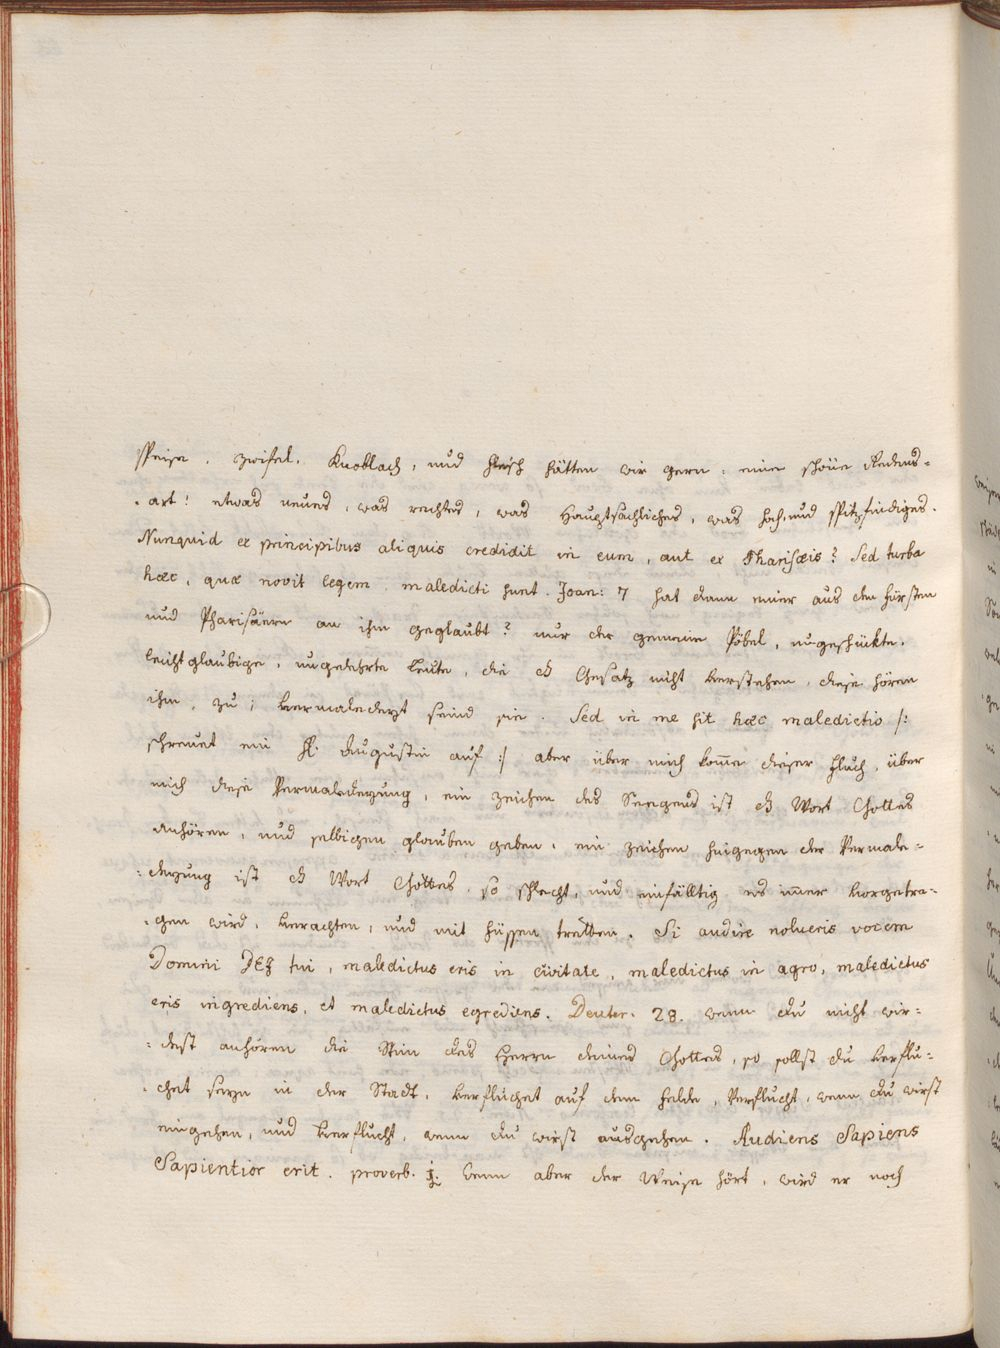 speise, zwifel, Knoblach, und fleisch hätten wir gern: eine schöne Redens-
-art! etwas neues, was rechtes, was Hauptsächliches, was hoch, und spitzfindiges.
Nunquid ex principibus aliquis credidit in eum, aut ex Pharisæis? Sed turba
hæc, quæ novit legem, maledicti sunt. Joan: 7 hat dann einer aus den fürsten
und Pharisäern an ihm geglaubt? nur der gemeine Pöbel, ungeschickte,
leichtglaubige, ungelehrte Leüte, die ds Gesatz nicht verstehen, diese hören
ihm, zu, vermaledeyt seind sie. Sed in me sit hæc maledictio /:
schreuet ein H. Augustin auf :/ aber über mich kom̄e dieser fluch, über
mich diese Vermaledeyung, ein zeichen des Seegens ist ds Wort Gottes
anhören, und selbigen glauben geben, ein zeichen hingegen der Vermale-
-deyung ist ds Wort Gottes, so schlecht, und einfälltig es im̄er vorgetra-
-gen wird, verachten, und mit füssen tretten. Si audire nolueris vocem
Domini DEJ tui, maledictus eris in civitate, maledictus in agro, maledictus
eris ingrediens, et maledictus egrediens. Deuter. 28. wenn du nicht wir-
-dest anhören die Stim des Herrn deines Gottes, so sollst du verflu-
-chet seyn in der Stadt, verfluchet auf dem felde, Verflucht, wenn du wirst
eingehen, und verflucht, wenn du wirst ausgehen. Audiens Sapiens
Sapientior erit. proverb. j. wenn aber der Weise hört, wird er noch